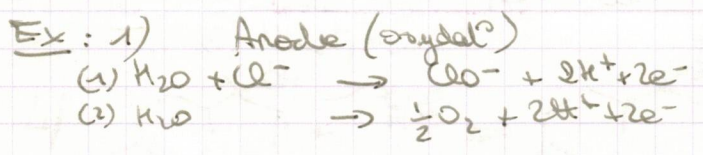 Ex : 1) Anode (oxydat°)
(1) H₂O + Cl⁻ → ClO⁻ + 2H⁺ + 2e⁻
(2) H₂O → ½O₂ + 2H⁺ + 2e⁻